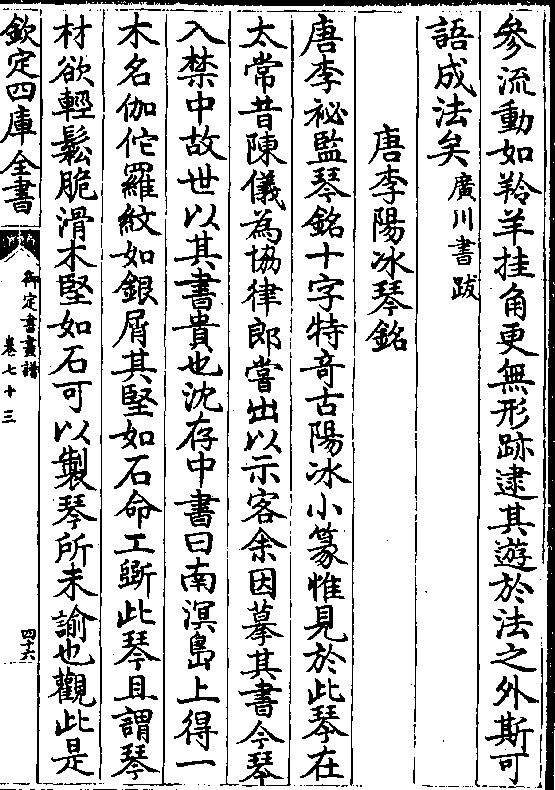 參流動如羚羊挂角更無形跡逮其遊於法之外斯可
語成法矣廣川書跋
唐李陽冰琴銘
唐李祕監琴銘十字特奇古陽冰小篆惟見於此琴在
太常昔陳儀為協律郎嘗出以示客余因摹其書今琴
入禁中故世以其書貴也沈存中書曰南溟島上得一
木名伽佗羅紋如銀屑其堅如石命工斲此琴且謂琴
材欲輕鬆脆滑木堅如石可以製琴所未諭也觀此是
欽定四庫全書
御定書畫譜
卷七十三
四十六